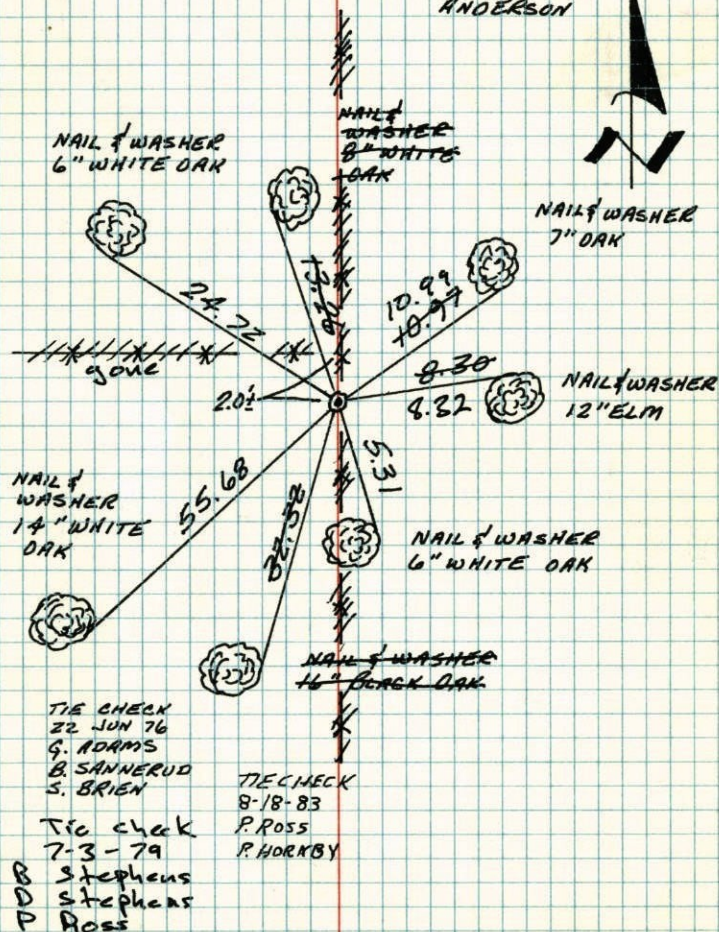 ANDERSON
NAIL &
WASHER
8" WHITE
OAK
NAIL & WASHER
6" WHITE OAK
N
NAIL & WASHER
7" OAK
13.26
24.72
10.99
10.97
gone
8.30
8.32
2.0±
NAIL & WASHER
12" ELM
5.31
55.68
NAIL &
WASHER
14" WHITE
OAK
NAIL & WASHER
6" WHITE OAK
NAIL & WASHER
16" BLACK OAK
TIE CHECK
22 JUN 76
G. ADAMS
B. SANNERUD
S. BRIEN
TIE CHECK
8-18-83
P. ROSS
P. HORKBY
Tie check
7-3-79
B Stephens
D Stephens
P Ross